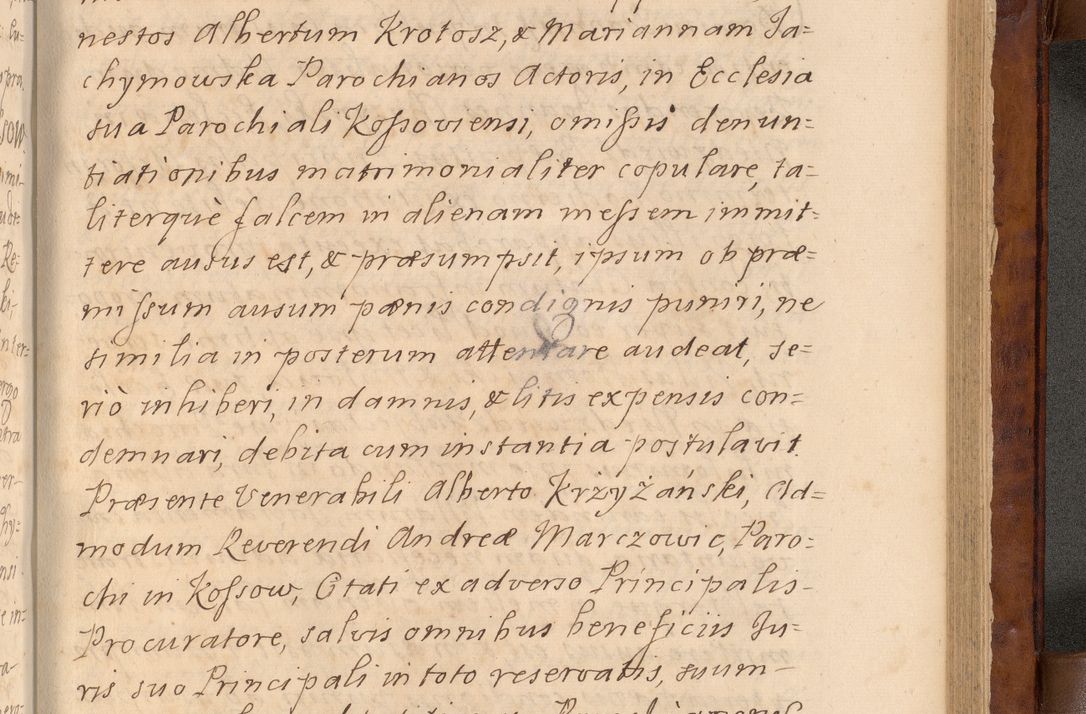 nestos Albertum Krotosz, & Mariannam Ja=
chymowska Parochianos Actoris, in Ecclesia
sua Parochiali Kossoviensi, omissis denun=
tiationibus matrimonialiter copulare, ta=
literquè falcem in alienam messem immit=
tere ausus est, & præsumpsit, ipsum ob præ=
missum ausum pænis condignis puniri, ne
similia in posterum attentare audeat, se=
riò inhiberi, in damnis, & litis expensis con=
demnari, debita cum instantia postulavit.
Præsente Venerabili Alberto Krzyżański, Ad=
modum Reverendi Andreæ Marczowic, Paro=
chi in Kossow, Citati ex adverso Principalis
Procuratore, salvis omnibus beneficiis Ju=
ris suo Principali in toto reservatis, suum